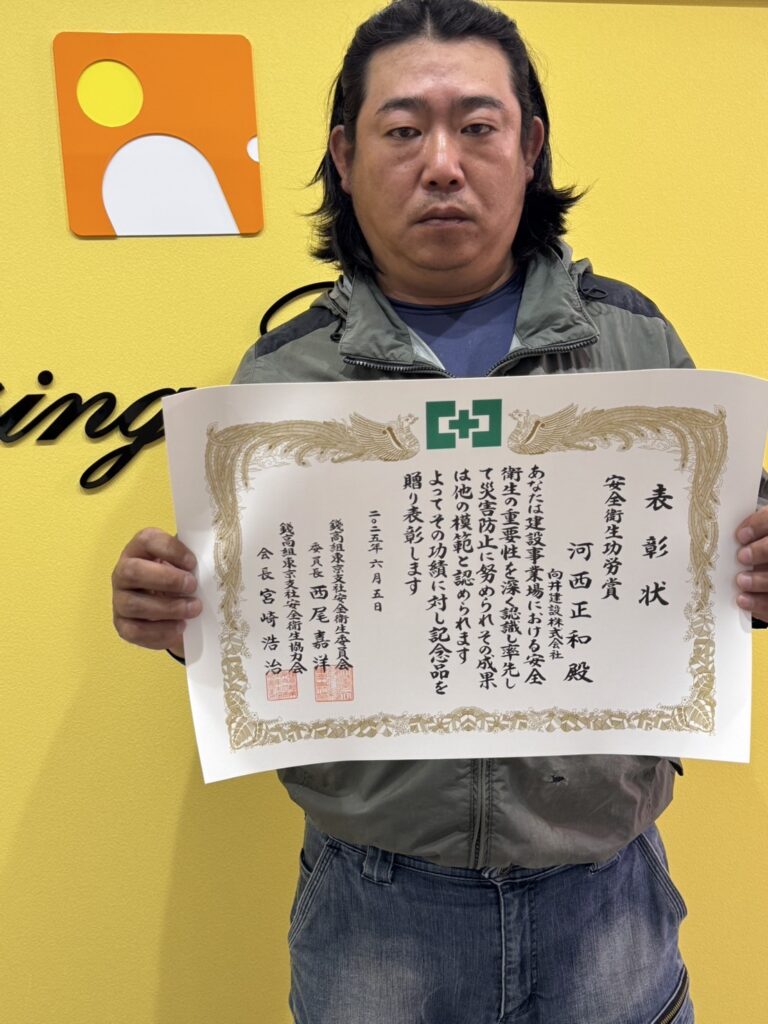 表彰状
安全衛生功労賞
向井建設株式会社
河西正和殿
あなたは建設事業場における安全
衛生の重要性を深く認識し率先し
て災害防止に努められその成果
は他の模範と認められます
よってその功績に対し記念品を
贈り表彰します
二〇二五年六月五日
錢高組東京支社安全衛生委員会
委員長西尾嘉洋
錢高組東京支社安全衛生協力会
会長宮崎浩治
sing